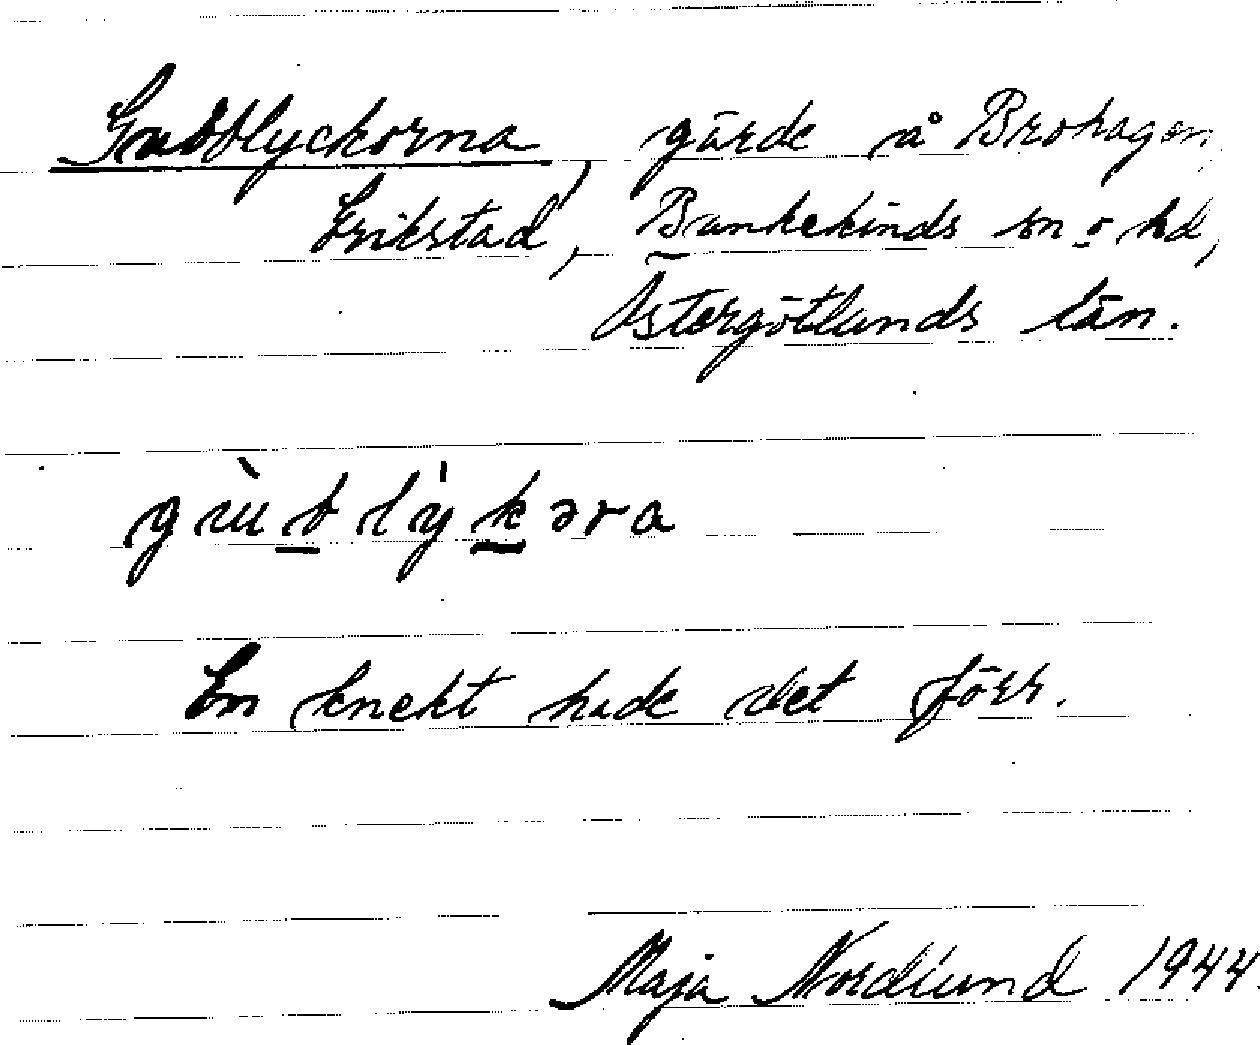 Gubblyckorna, gärde å Brohagen,
Erikstad, Bankekinds sn o hd,
Östergötlands län.
gùb lýkəra
En knekt hade det förr.
Maja Nordlund 1944.